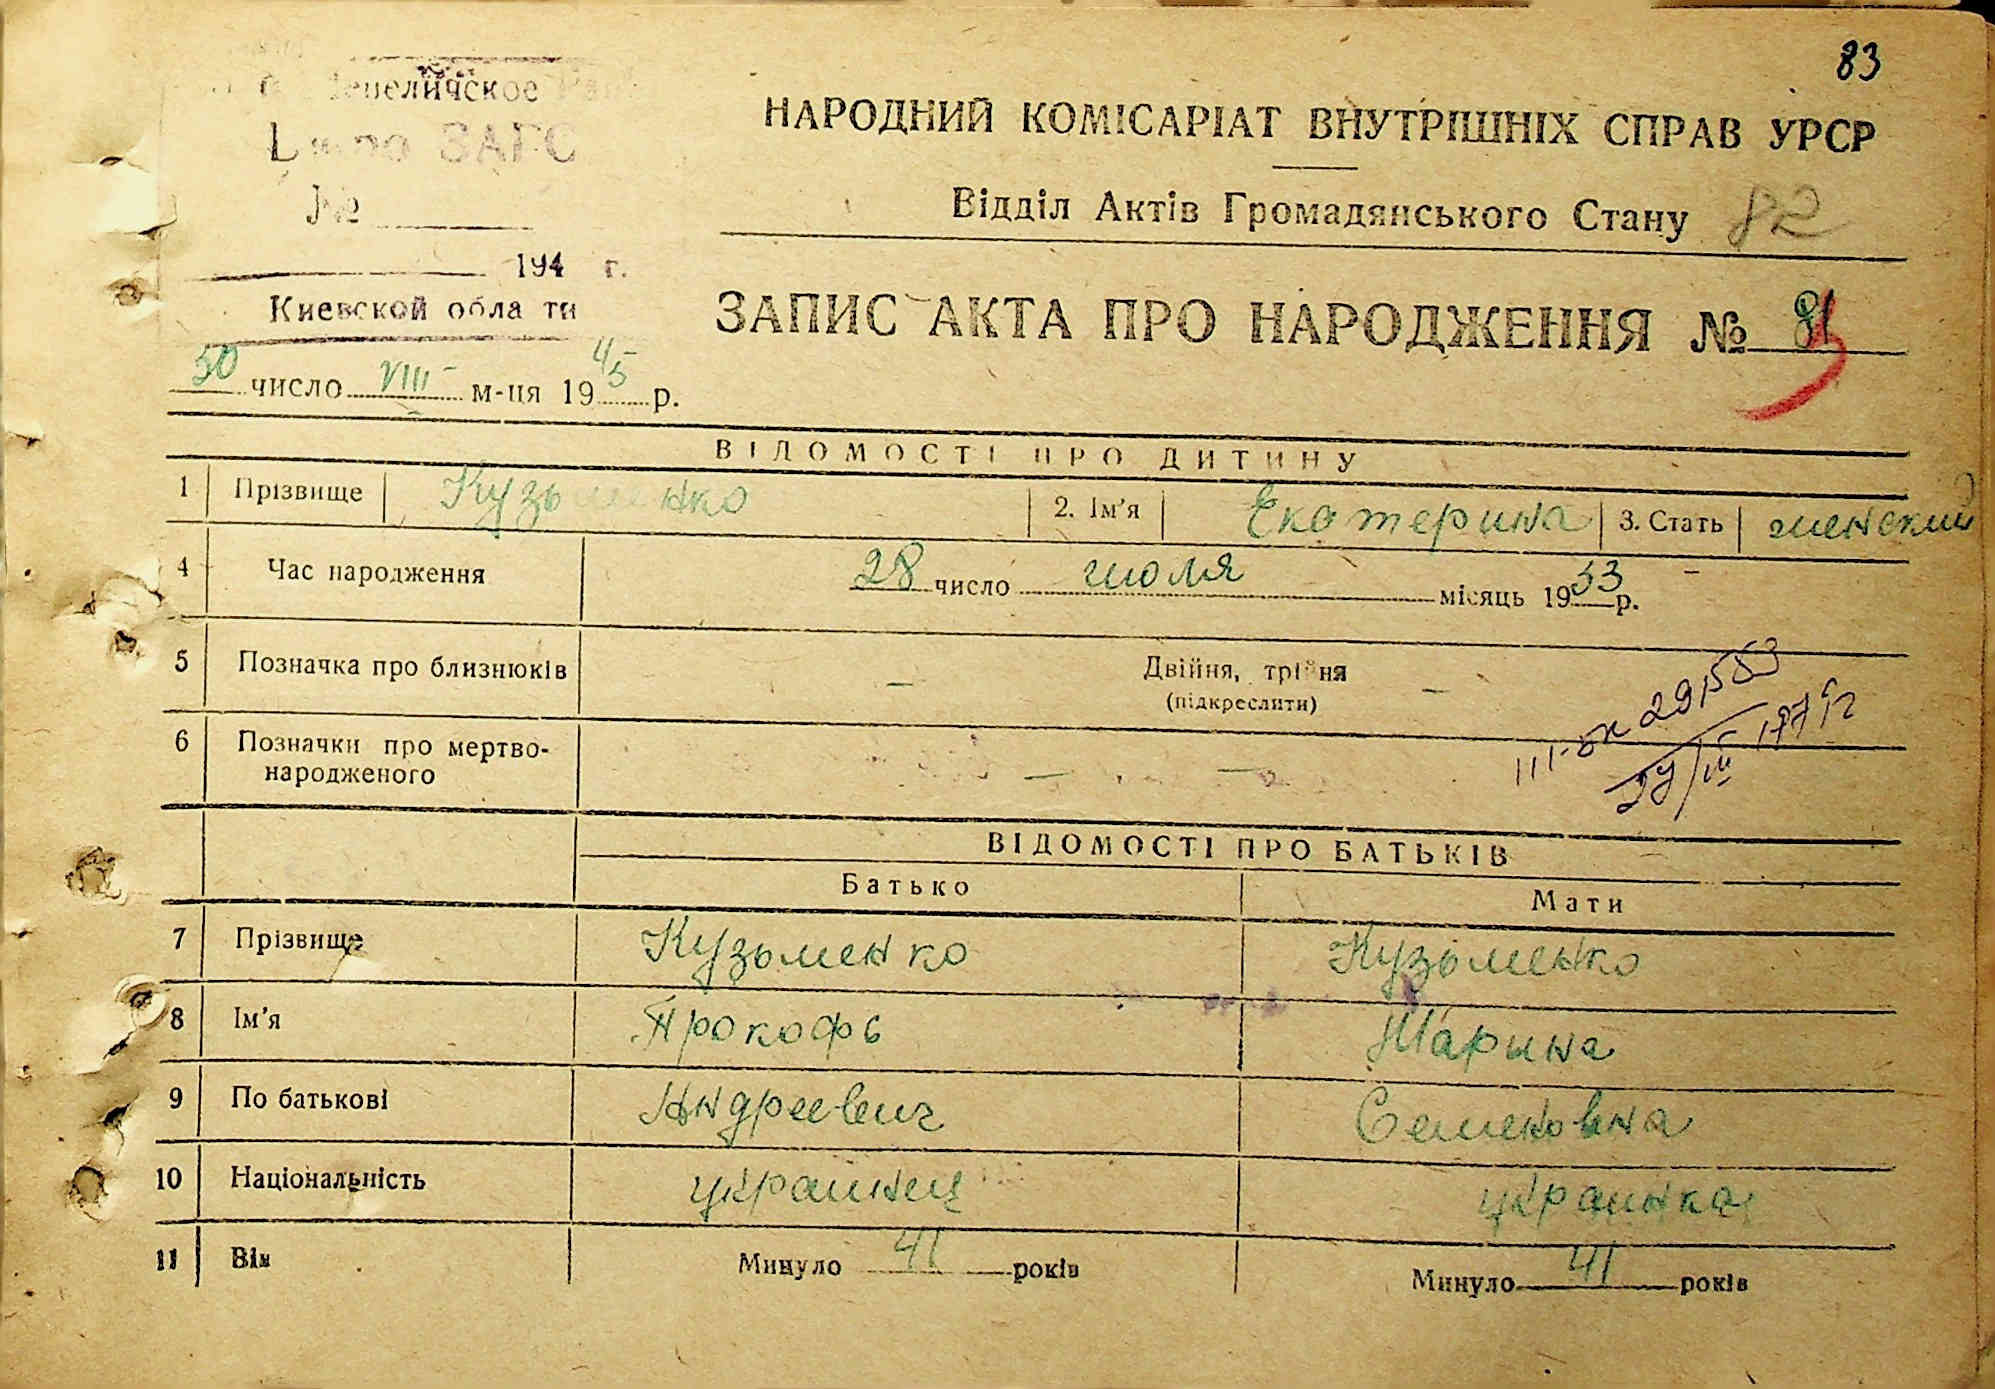 83
НАРОДНИЙ КОМІСАРІАТ ВНУТРІШНІХ СПРАВ УРСР
ЗАГС
№
Відділ Актів Громадянського Стану 82
194 г.
Киевской обла ти
ЗАПИС АКТА ПРО НАРОДЖЕННЯ № 81
30 число VIII м-ця 1945 р.
ВІДОМОСТІ ПРО ДИТИНУ
1 Прізвище Кузьменко 2. Ім'я Екатерина 3. Стать женский
4 Час народження 28 число июля місяць 1933 р.
5 Позначка про близнюків — Двійня, трійня —
(підкреслити)
6 Позначки про мертво-
народженого — —
ВІДОМОСТІ ПРО БАТЬКІВ
Батько Мати
7 Прізвище Кузьменко Кузьменко
8 Ім'я Прокофь Марина
9 По батькові Андреевич Семеновна
10 Національність украинец украинка
11 Вік Минуло 41 років Минуло 41 років